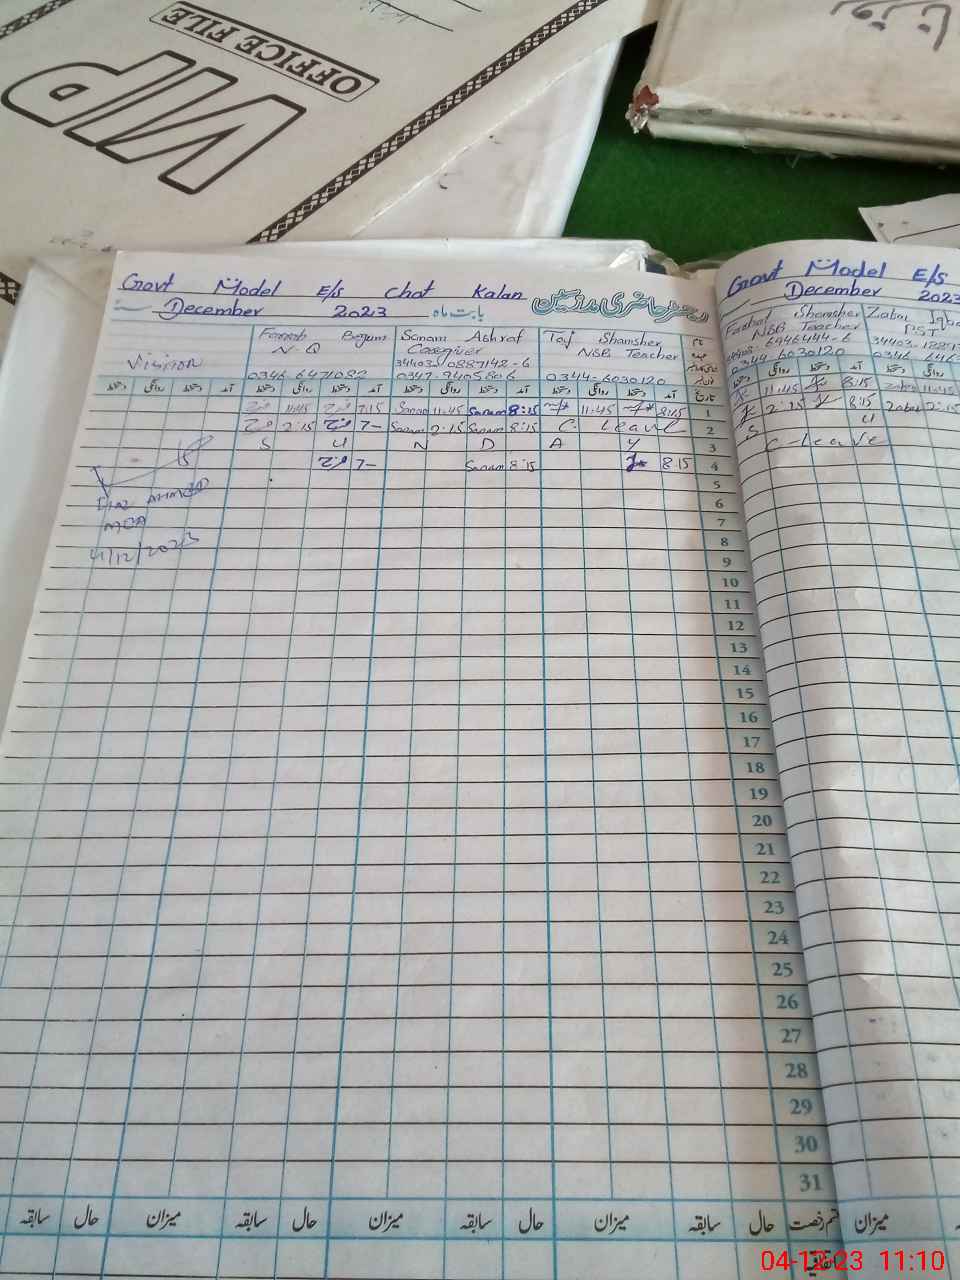 VIP
OFFICE FILE
Govt Model E/S Chot Kalan
December 2023 بابت ماہ دفتر حاضری مدرسین
Farrah Begum Sanam Ashraf Taj Shamsher
N-Q Caregiver NSB Teacher
Vision
0346 6471082 0347-9405806 0344-6030120
دستخط روانگی دستخط آمد دستخط روانگی دستخط آمد دستخط روانگی دستخط آمد دستخط روانگی دستخط آمد تاریخ
11:45 7:15 Sanam 11:45 Sanam 8:15 11:45 8:15 1
2:15 7- Sanam 2:15 Sanam 8:15 C. leave 2
S U N D A Y 3
7- Sanam 8:15 8:15 4
5
AHMED
MEA 6
7
4/12/2023 8
9
10
11
12
13
14
15
16
17
18
19
20
21
22
23
24
25
26
27
28
29
30
31
سابقہ حال میزان سابقہ حال میزان سابقہ حال میزان سابقہ حال قسم رخصت
اتفاقیہ
Govt Model E/S
December 2023
Farhat Shamsher Zabar Iqba
NSB Teacher PST
0344-6030120 0346
دستخط روانگی دستخط آمد دستخط روانگی
11:45 8:15 Zabar 11:45
2:15 8:15 Zabar 2:15
S U
C-leave
میزان
04-12-23 11:10